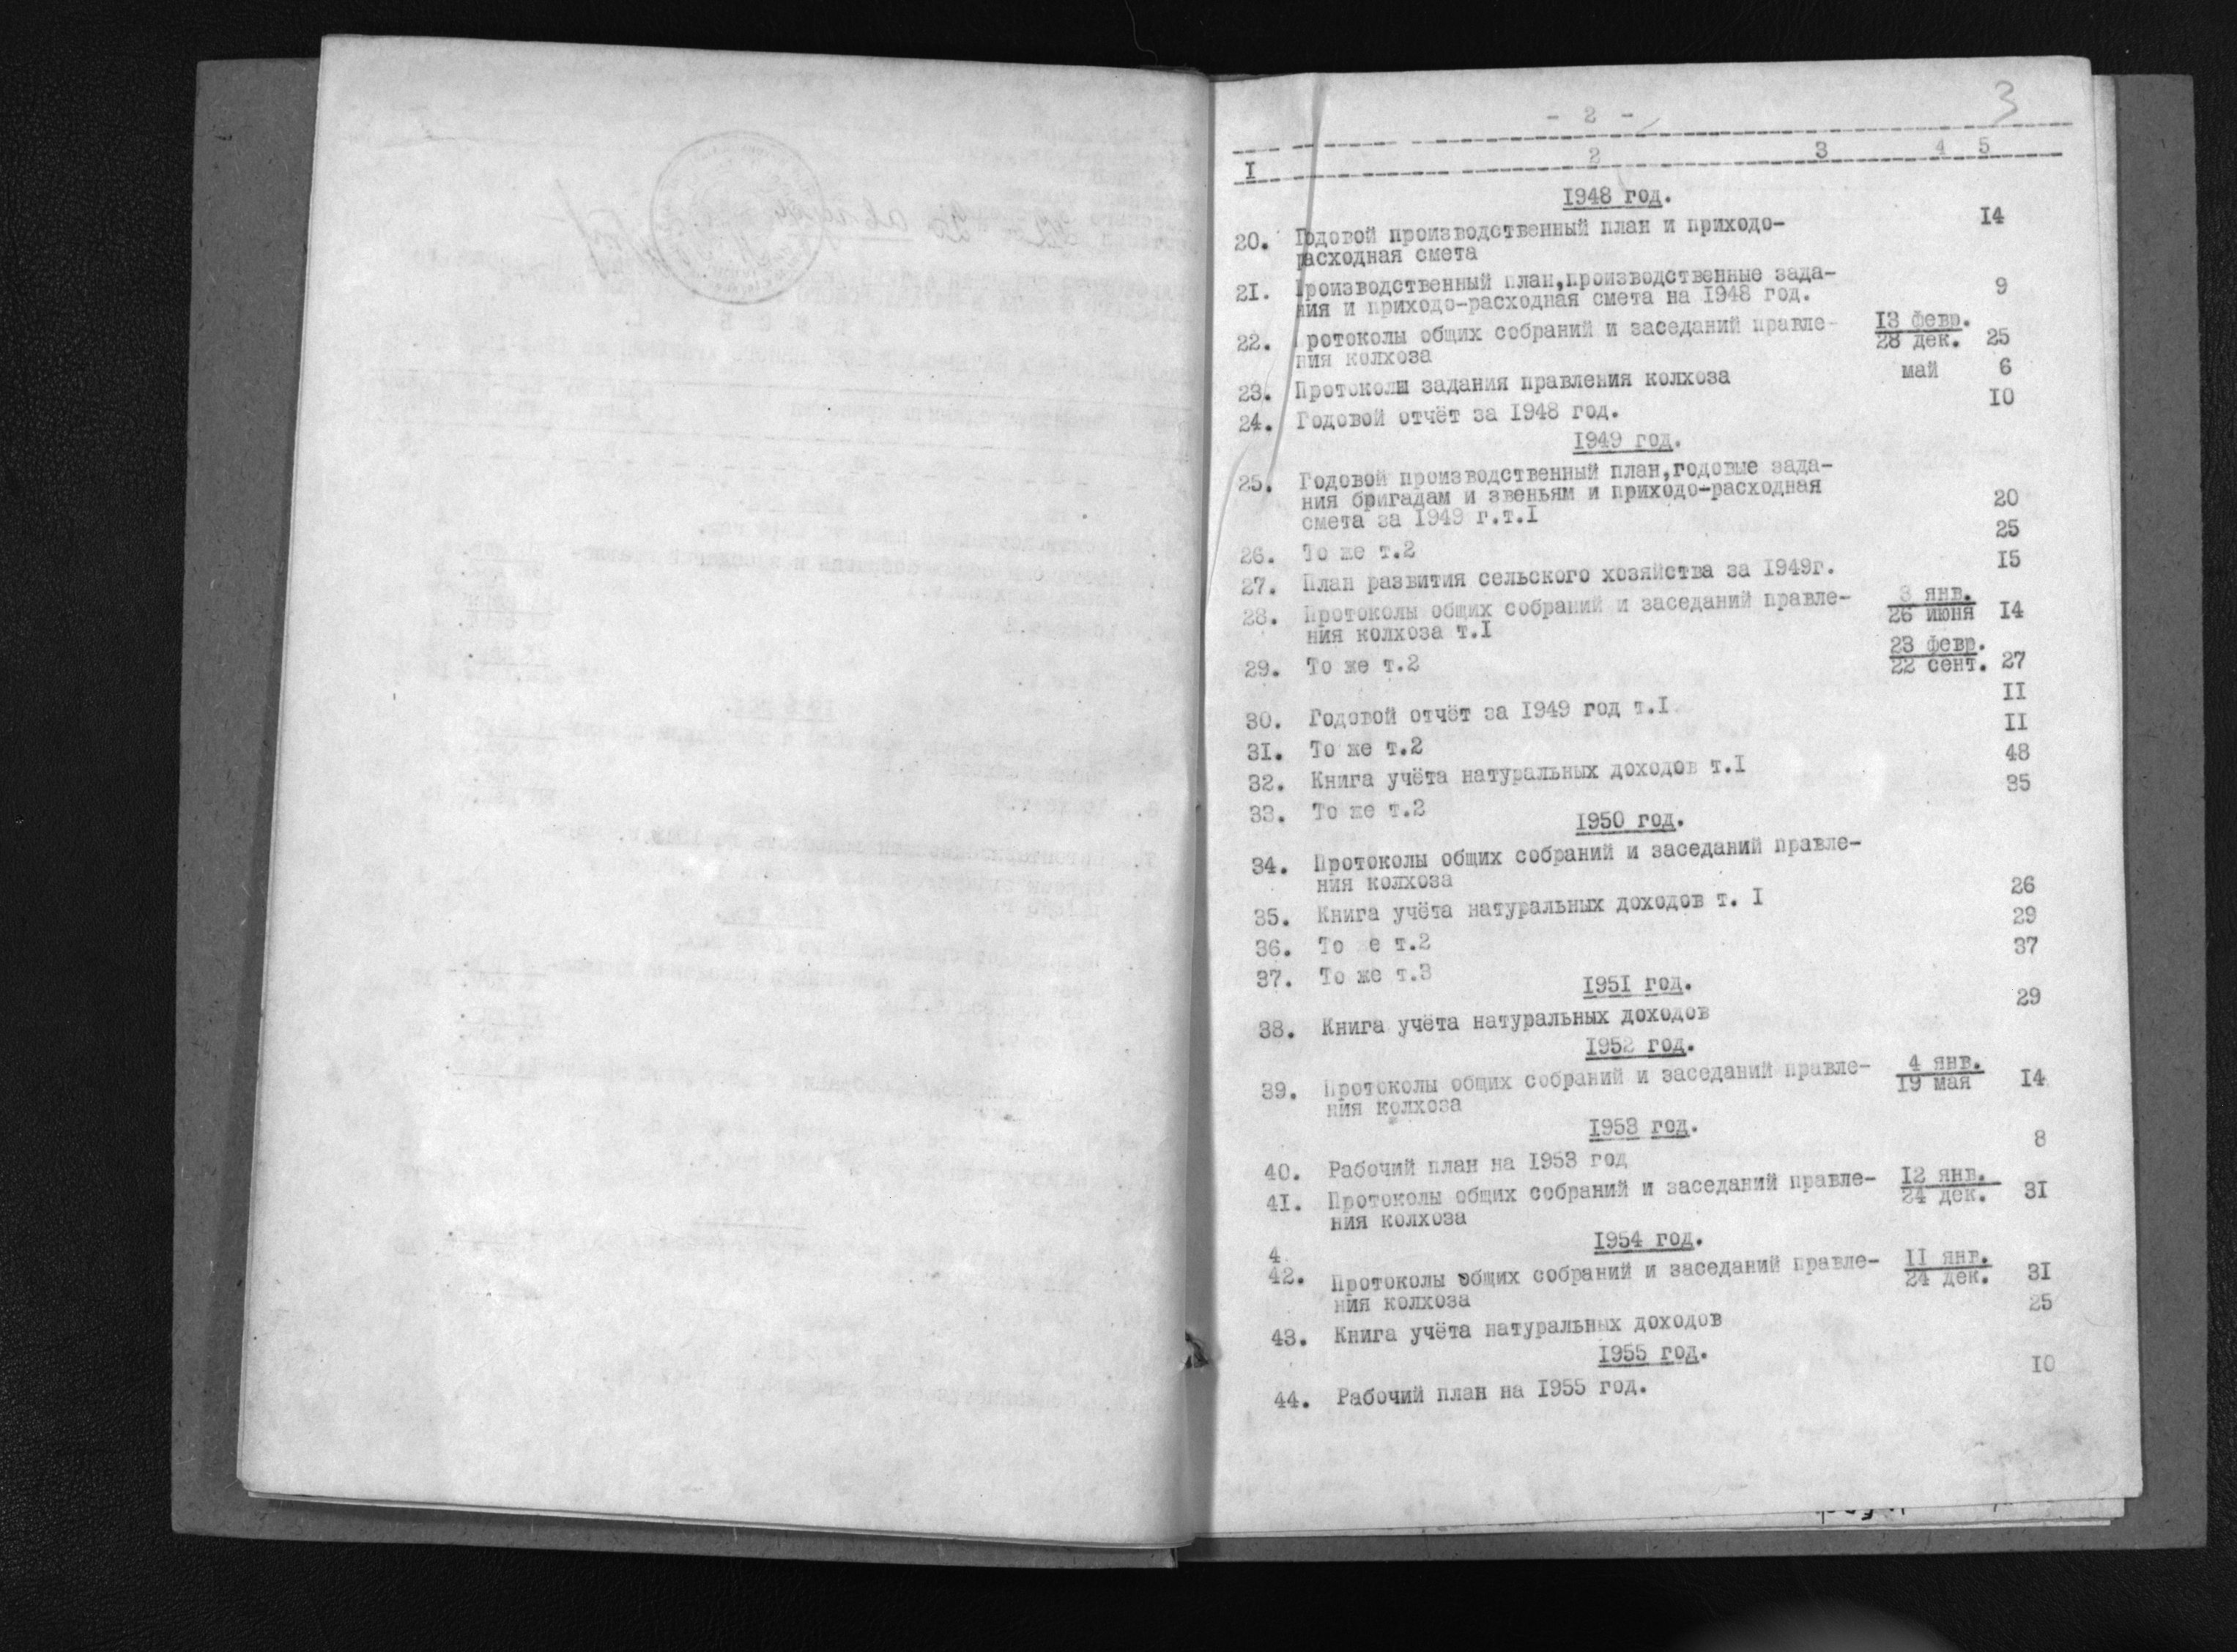 3
- 2 -
I 2 3 4 5
1948 год.
20. Годовой производственный план и приходо- 14
расходная смета
21. Производственный план,производственные зада-
ния и приходо-расходная смета на 1948 год. 9
22. Протоколы общих собраний и заседаний правле- 13 февр.
ния колхоза 28 дек. 25
23. Протоколы задания правления колхоза май 6
24. Годовой отчёт за 1948 год. 10
1949 год.
25. Годовой производственный план,годовые зада-
ния бригадам и звеньям и приходо-расходная
смета за 1949 г.т.I 20
26. То же т.2 25
27. План развития сельского хозяйства за 1949г. 15
28. Протоколы общих собраний и заседаний правле- 3 янв.
ния колхоза т.I 26 июня 14
29. То же т.2 23 февр.
22 сент. 27
30. Годовой отчёт за 1949 год т.I II
31. То же т.2 II
32. Книга учёта натуральных доходов т.I 48
33. То же т.2 35
1950 год.
34. Протоколы общих собраний и заседаний правле-
ния колхоза 26
35. Книга учёта натуральных доходов т. I 29
36. То е т.2 37
37. То же т.3
1951 год.
38. Книга учёта натуральных доходов 29
1952 год.
39. Протоколы общих собраний и заседаний правле- 4 янв.
ния колхоза 19 мая 14
1953 год.
40. Рабочий план на 1953 год 8
41. Протоколы общих собраний и заседаний правле- 12 янв.
ния колхоза 24 дек. 31
1954 год.
4
42. Протоколы общих собраний и заседаний правле- 11 янв.
ния колхоза 24 дек. 31
43. Книга учёта натуральных доходов 25
1955 год.
44. Рабочий план на 1955 год. 10